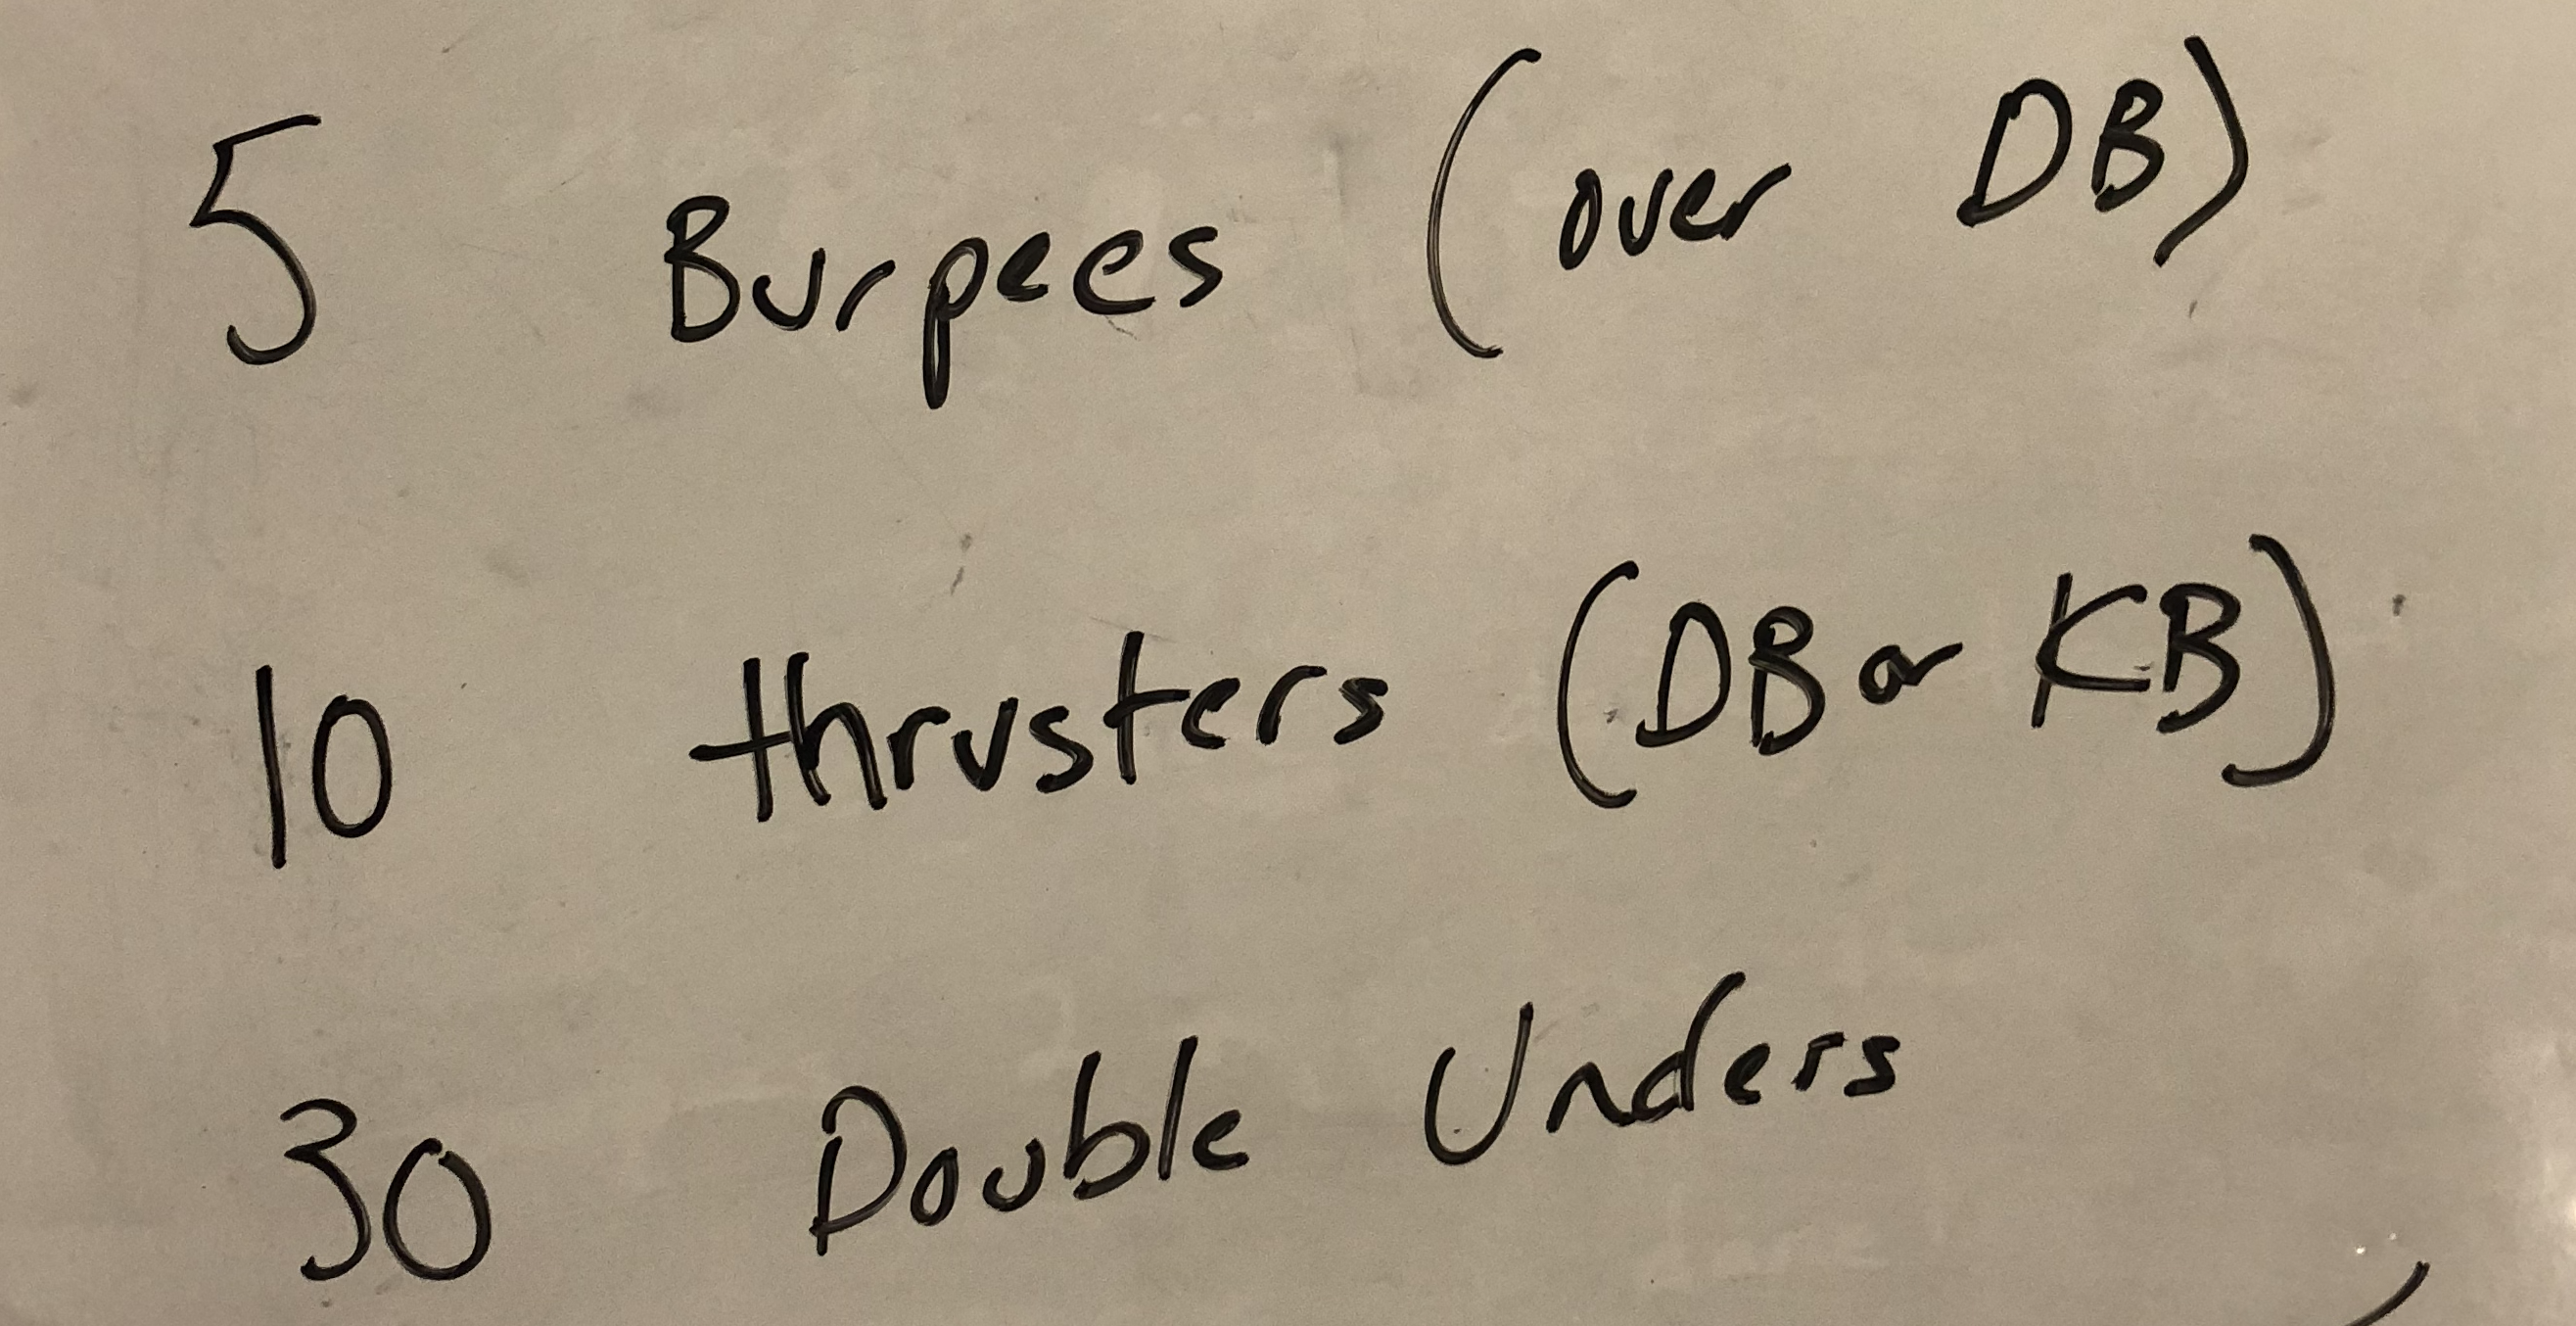 5 Burpees (over DB)
10 thrusters (DB or KB)
30 Double Unders